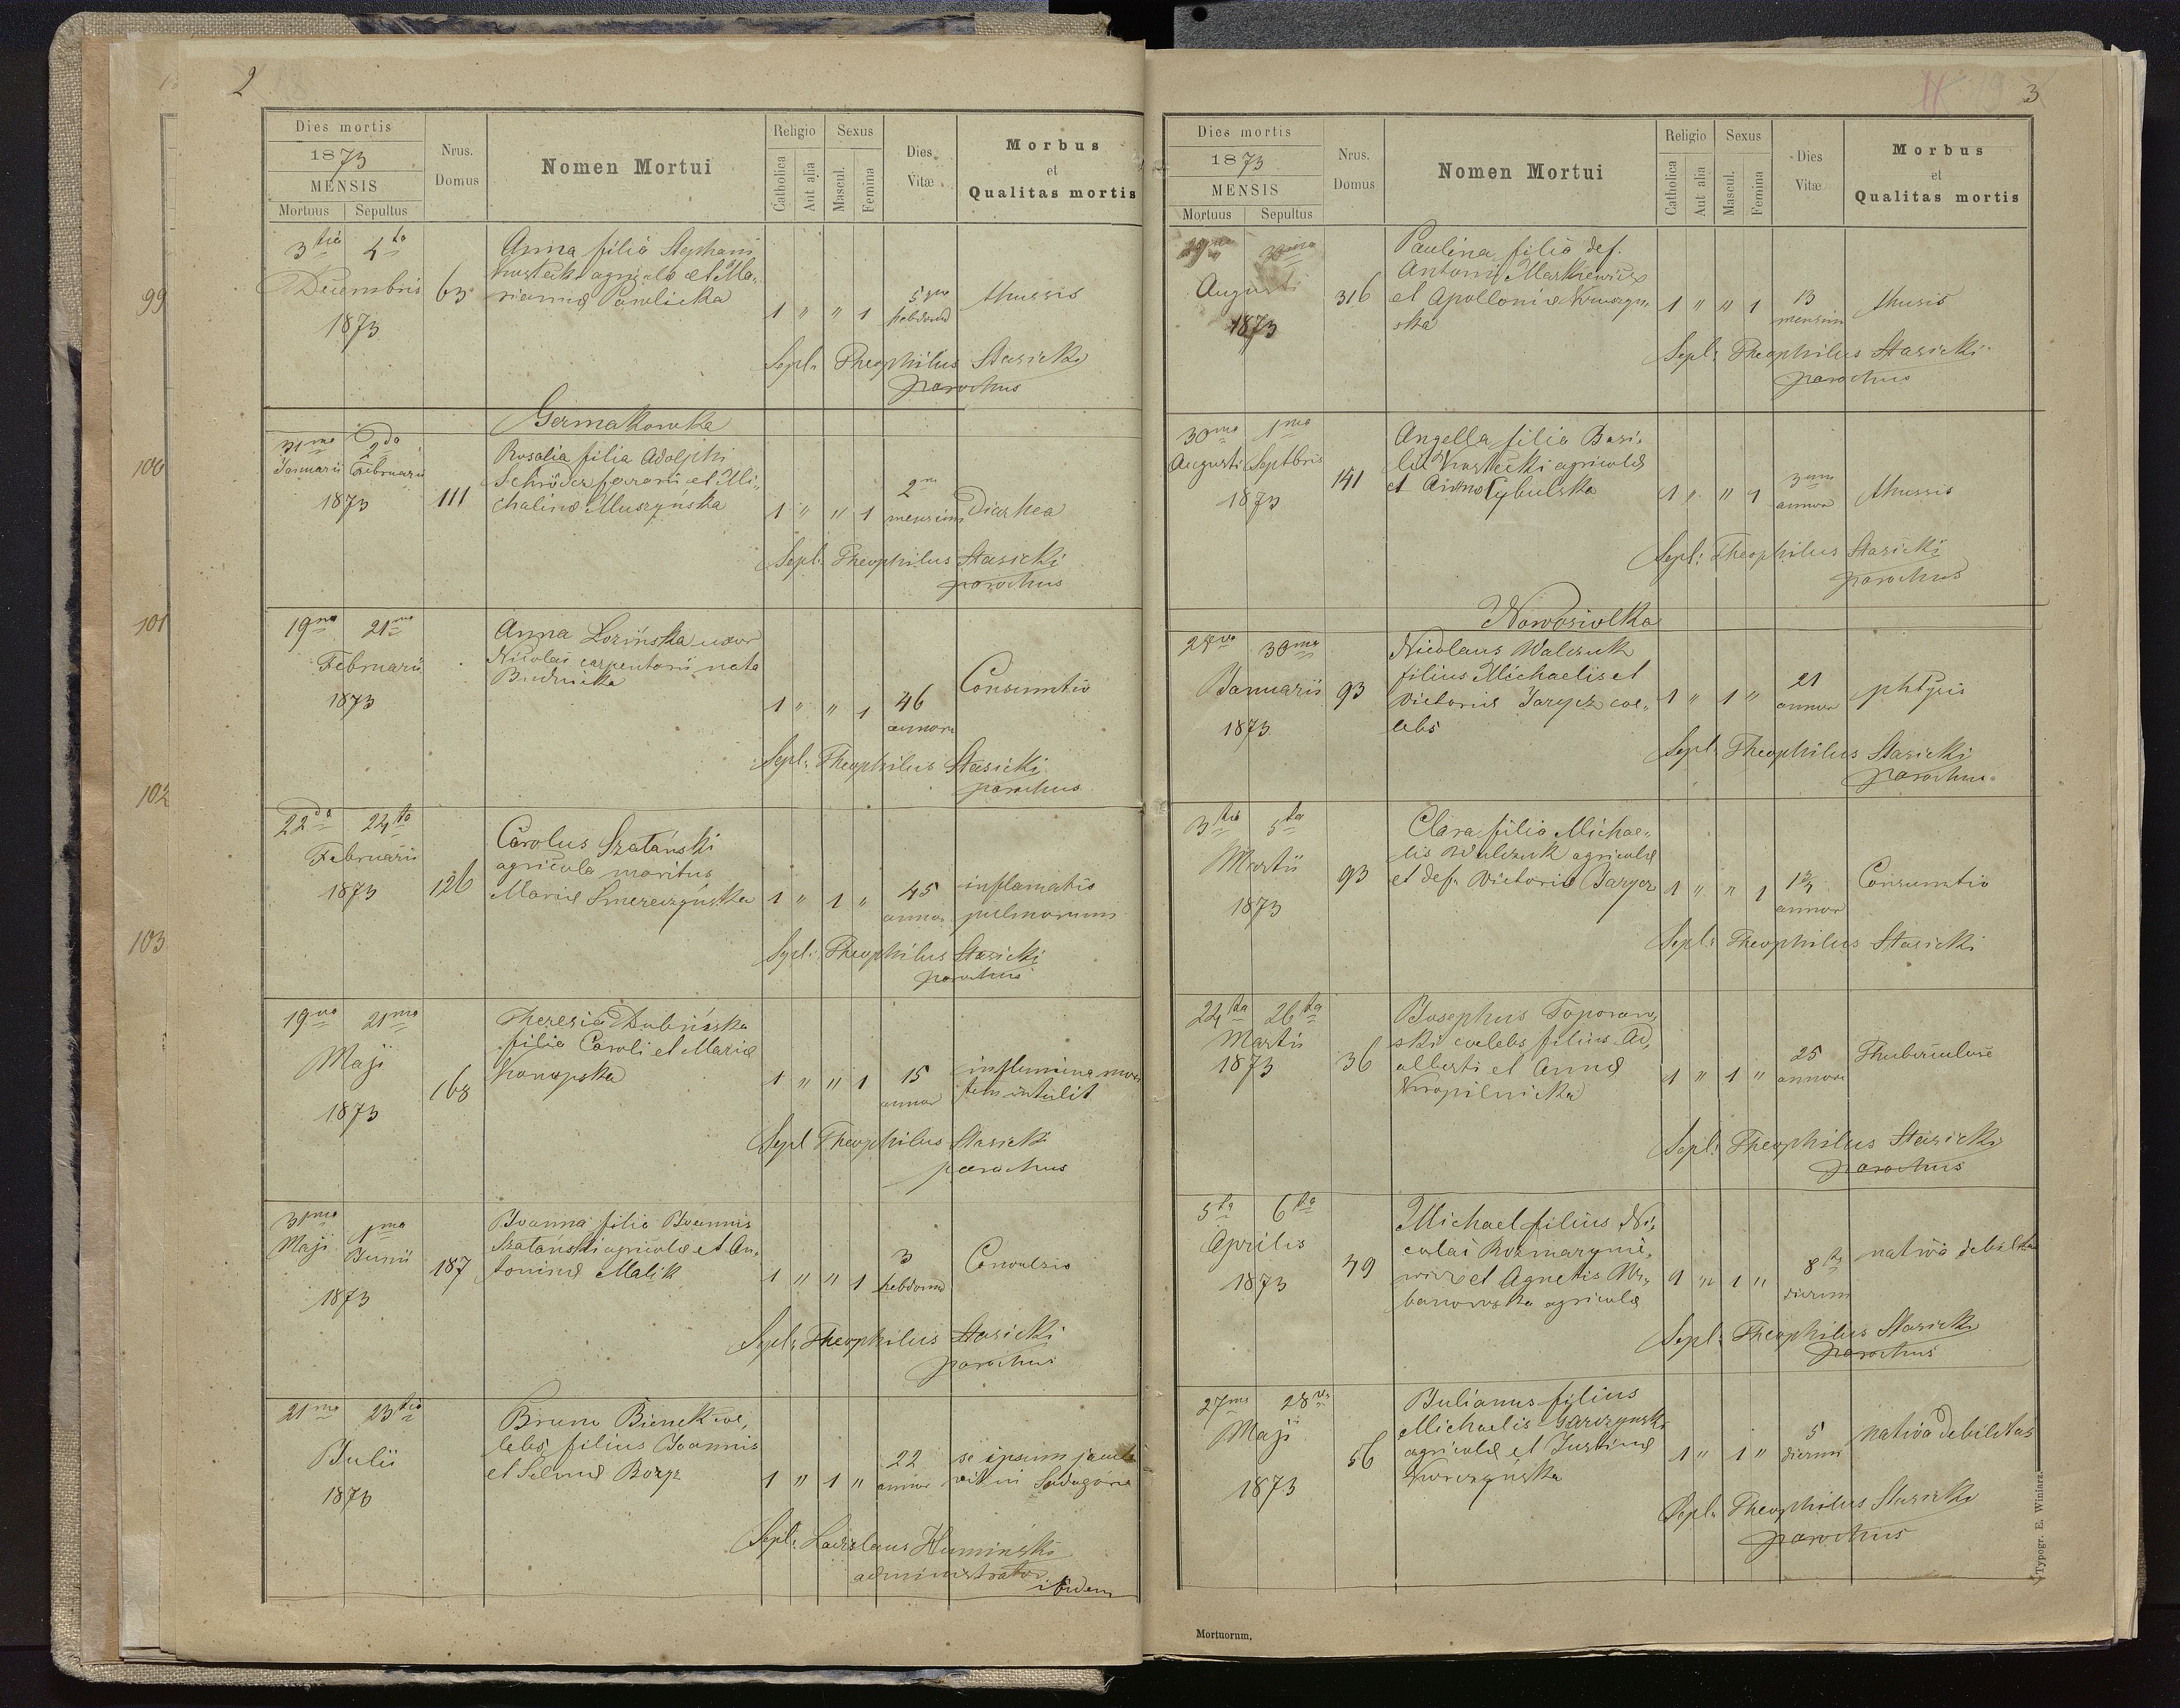 2
Dies mortis
1873
MENSIS
Mortuus Sepultus
Nrus.
Domus
Nomen Mortui
Religio
Catholica
Aut alia
Sexus
Mascul.
Femina
Dies
Vitæ
Morbus
et
Qualitas mortis
99
3tia 4ta
Decembris
1873
63
Anna filia Stephani
Kostecki agricolæ et Ma-
riannæ Pawlicka
1 " " 1
hebdomad
thussis
Sepl: Theophilus Stasicki
parochus
Germakowka
100
31ma 2da
Januarii Februarii
1873
111
Rosalia filia Adolphi
Schröder et Mi-
chalinæ Muszyńska
1 " " 1
2
mensium
Diarhea
Sepl: Theophilus Stasicki
parochus
101
19na 21ma
Februarii
1873
Anna Łozińska uxor
Nicolai carpentarii nata
Budnicka
1 " " 1
46
annor
Consumtio
Sepl: Theophilus Stasicki
parochus
102
22da 24ta
Februarii
1873
126
Carolus Szatański
agricola maritus
Mariæ Smereczyńska
1 " 1 "
45
annor
inflamatio
pulmonum
Sepl: Theophilus Stasicki
parochus
103
19na 21ma
Maji
1873
168
Theresia
filia Caroli et Mariæ
Konopska
1 " " 1
15
annor
tem intulit
Sepl Theophilus Stasicki
parochus
31ma 1ma
Maji Junii
1873
187
Joanna filia Joannis
Szatański agricolæ et An-
toninæ Malik
1 " " 1
3
hebdomad
Convulsio
Sepl: Theophilus Stasicki
parochus
21ma 23tia
Julii
1873
Bruno Bienek coe-
lebs, filius Joannis
et
1 " 1 "
22
annor
se ipsum
in Sadagóra
Sepl: Ladislaus Humiński
administrator
ibidem
3
Dies mortis
1873
MENSIS
Mortuus Sepultus
Nrus.
Domus
Nomen Mortui
Religio
Catholica
Aut alia
Sexus
Mascul.
Femina
Dies
Vitæ
Morbus
et
Qualitas mortis
29na 30ma
Augusti
1873
316
Paulina filia def.
Antonii Maskiewicz
et Apolloniæ Kruszyn-
ska
1 " " 1
13
mensium
thusis
Sepl: Theophilus Stasicki
parochus
30ma 1ma
Augusti Septbris
1873
141
Angella filia Basi-
lii Kostecki agricolæ
et Annæ Cybulska
1 " " 1
annor
thussis
Sepl: Theophilus Stasicki
parochus
Nowosiolka
28va 30ma
Januarii
1873
93
Nicolaus Walczuk
filius Michaelis et
Victoriæ Jarycz coe-
lebs
1 " 1 "
21
annor
phtysis
Sepl: Theophilus Stasicki
parochus
3tia 5ta
Martii
1873
93
Clara filia Michae-
lis Walczuk agricolæ
et def. Victoriæ Jarycz
1 " " 1
annor
Consumtio
Sepl: Theophilus Stasicki
24ta 26ta
Martii
1873
36
Josephus Toporow-
ski coelebs filius Ad-
alberti et Annæ
Kropilnicka
1 " 1 "
25
annor
Thuberculose
Sepl: Theophilus Stasicki
parochus
5ta 6ta
Aprilis
1873
49
Michael filius Ni-
colai Rozmaryno-
wicz et Agnetis Ur-
banowska agricolæ
1 " 1 "
8
dierum
nativa debilitas
Sepl: Theophilus Stasicki
parochus
27ma 28va
Maji
1873
56
Julianus filius
Michaelis Garczynski
agricolæ et Justinæ
Korczyńska
1 " 1 "
5
dierum
nativa debilitas
Sepl: Theophilus Stasicki
parochus
Typogr. E. Winiarz.
Mortuorum.